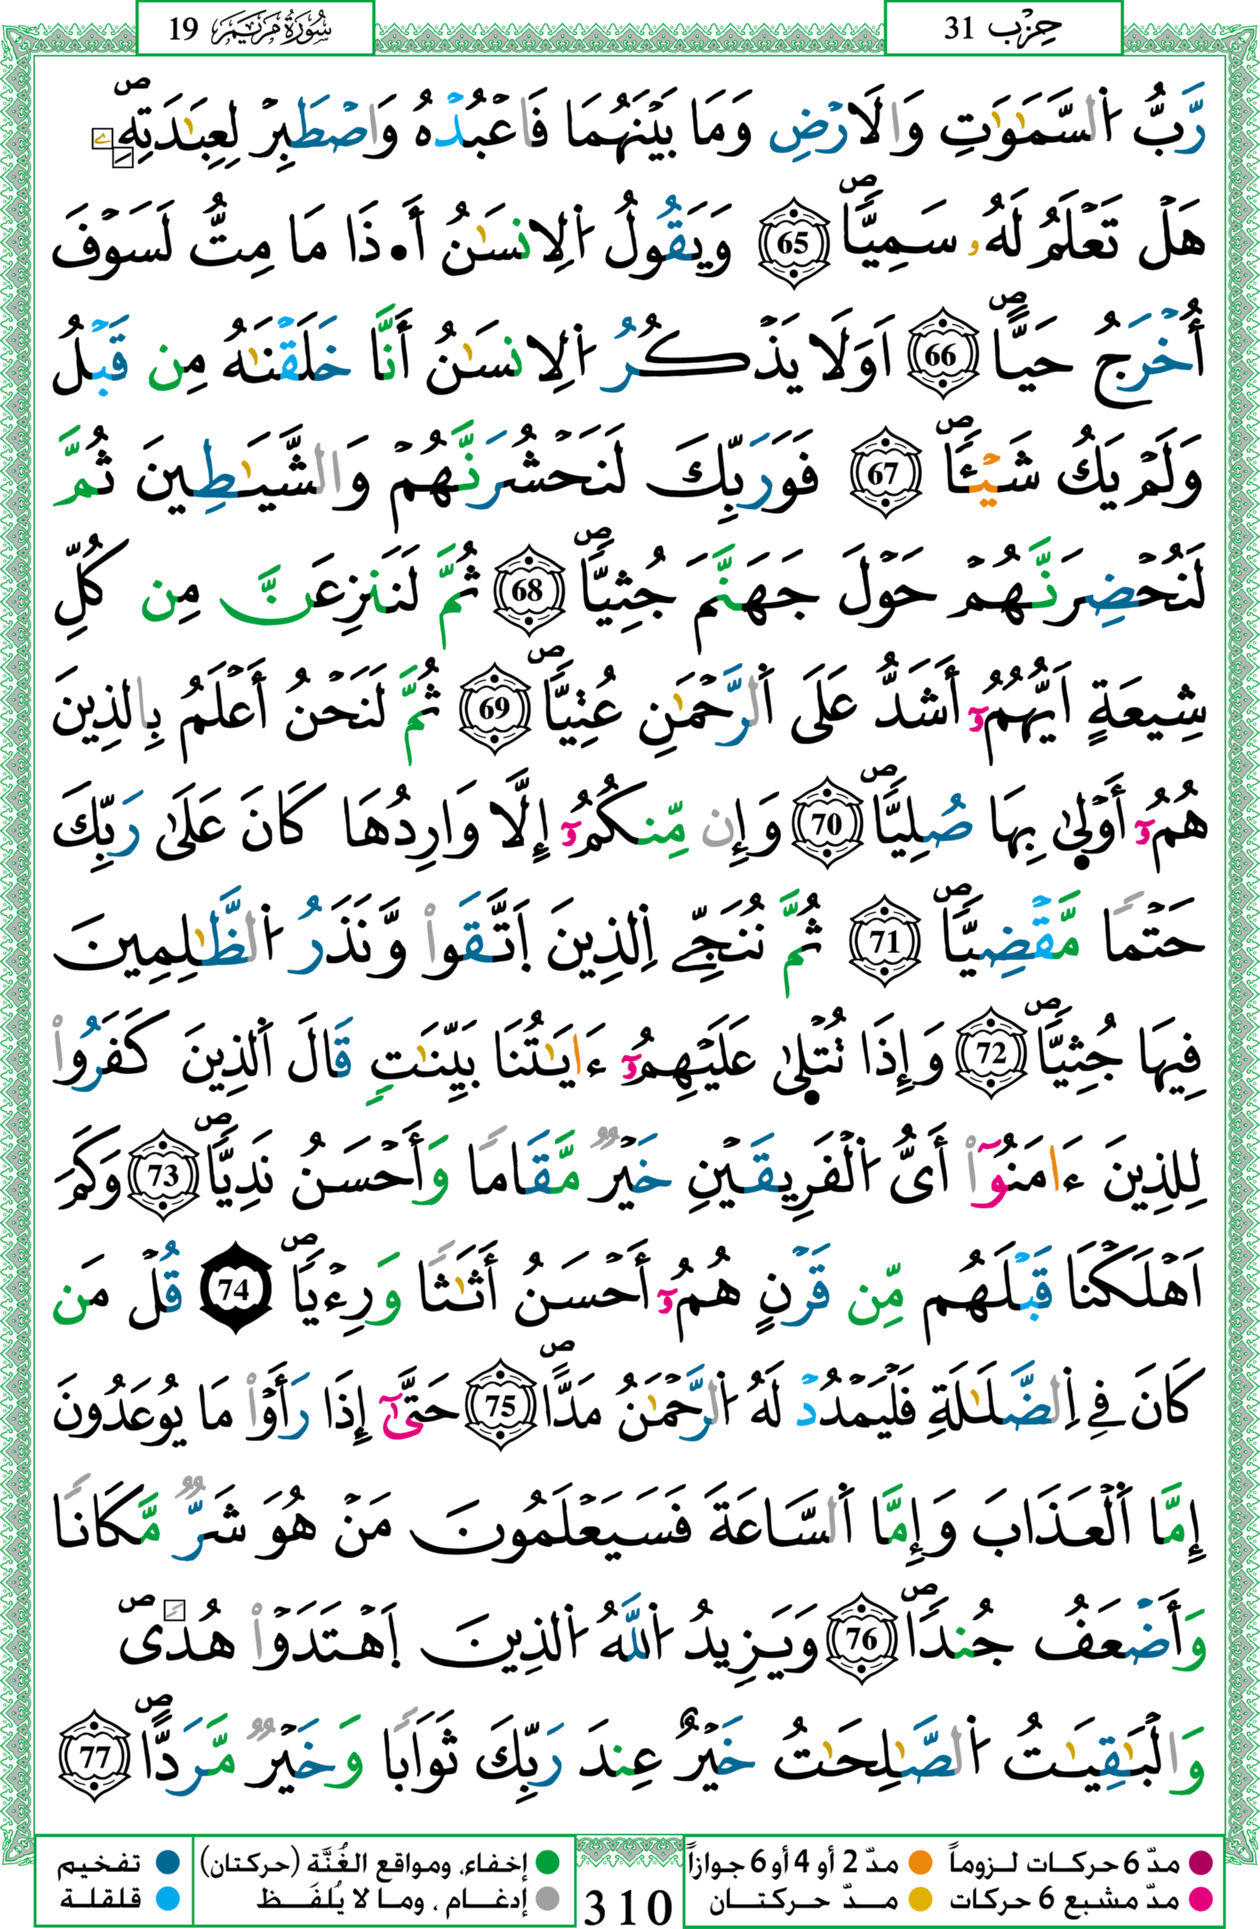 سُورَةُ مَرْيَمَ 19
حِزْب 31
رَّبُّ اُ۬لسَّمَٰوَٰتِ وَالَارْضِ وَمَا بَيْنَهُمَا فَاعْبُدْهُ وَاصْطَبِرْ لِعِبَٰدَتِهِۦۖ
هَلْ تَعْلَمُ لَهُۥ سَمِيّٗاۖ 65 وَيَقُولُ اُ۬لِانسَٰنُ أَ•ذَا مَا مِتُّ لَسَوْفَ
أُخْرَجُ حَيّاًۖ 66 اَوَلَا يَذْكُرُ اُ۬لِانسَٰنُ أَنَّا خَلَقْنَٰهُ مِن قَبْلُ
وَلَمْ يَكُ شَيْـٔاٗۖ 67 فَوَرَبِّكَ لَنَحْشُرَنَّهُمْ وَالشَّيَٰطِينَ ثُمَّ
لَنُحْضِرَنَّهُمْ حَوْلَ جَهَنَّمَ جُثِيّاٗۖ 68 ثُمَّ لَنَنزِعَنَّ مِن كُلِّ
شِيعَةٍ اَيُّهُمُۥٓ أَشَدُّ عَلَى اَ۬لرَّحْمَٰنِ عُتِيّاٗۖ 69 ثُمَّ لَنَحْنُ أَعْلَمُ بِالذِينَ
هُمُۥٓ أَوْل۪يٰ بِهَا صُلِيّاٗۖ 70 وَإِن مِّنكُمُۥٓ إِلَّا وَارِدُهَا كَانَ عَلَىٰ رَبِّكَ
حَتْماٗ مَّقْضِيّاٗۖ 71 ثُمَّ نُنَجِّے اِ۬لذِينَ اَ۪تَّقَواْ وَّنَذَرُ اُ۬لظَّٰلِمِينَ
فِيهَا جُثِيّاٗۖ 72 وَإِذَا تُتْل۪يٰ عَلَيْهِمُۥٓ ءَايَٰتُنَا بَيِّنَٰتٖ قَالَ اَ۬لذِينَ كَفَرُواْ
لِلذِينَ ءَامَنُوٓاْ أَيُّ اُ۬لْفَرِيقَيْنِ خَيْرٞ مَّقَاماٗ وَأَحْسَنُ نَدِيّاٗۖ 73 وَكَمَ
اَهْلَكْنَا قَبْلَهُم مِّن قَرْنٍ هُمُۥٓ أَحْسَنُ أَثَٰثاٗ وَرِءْياٗۖ 74 قُلْ مَن
كَانَ فِے اِ۬لضَّلَٰلَةِ فَلْيَمْدُدْ لَهُ اُ۬لرَّحْمَٰنُ مَدّاًۖ 75 حَتَّىٰٓ إِذَا رَأَوْاْ مَا يُوعَدُونَ
إِمَّا اَ۬لْعَذَابَ وَإِمَّا اَ۬لسَّاعَةَ فَسَيَعْلَمُونَ مَنْ هُوَ شَرّٞ مَّكَاناٗ
وَأَضْعَفُ جُنداٗۖ 76 وَيَزِيدُ اُ۬للَّهُ اُ۬لذِينَ اَ۪هْتَدَوْاْ هُدىٗۖ
وَالْبَٰقِيَٰتُ اُ۬لصَّٰلِحَٰتُ خَيْرٌ عِندَ رَبِّكَ ثَوَاباٗ وَخَيْرٞ مَّرَدّاًۖ 77
مدّ 6 حركات لـزوماً مدّ 2 أو 4 أو 6 جوازاً إخفاء، ومواقع الغُنَّة (حركتان) تفخيم
مدّ مشبع 6 حركات مـدّ حركتـــان 310 إدغـام ، ومـا لا يُلفَـظ قلقلة